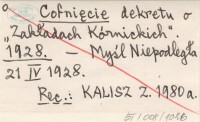 Cofnięcie dekretu o
„Zakładach Kórnickich".
1928. — Myśl Niepodległa
21 IV 1928.
Rec.: KALISZ Z. 1980 a.